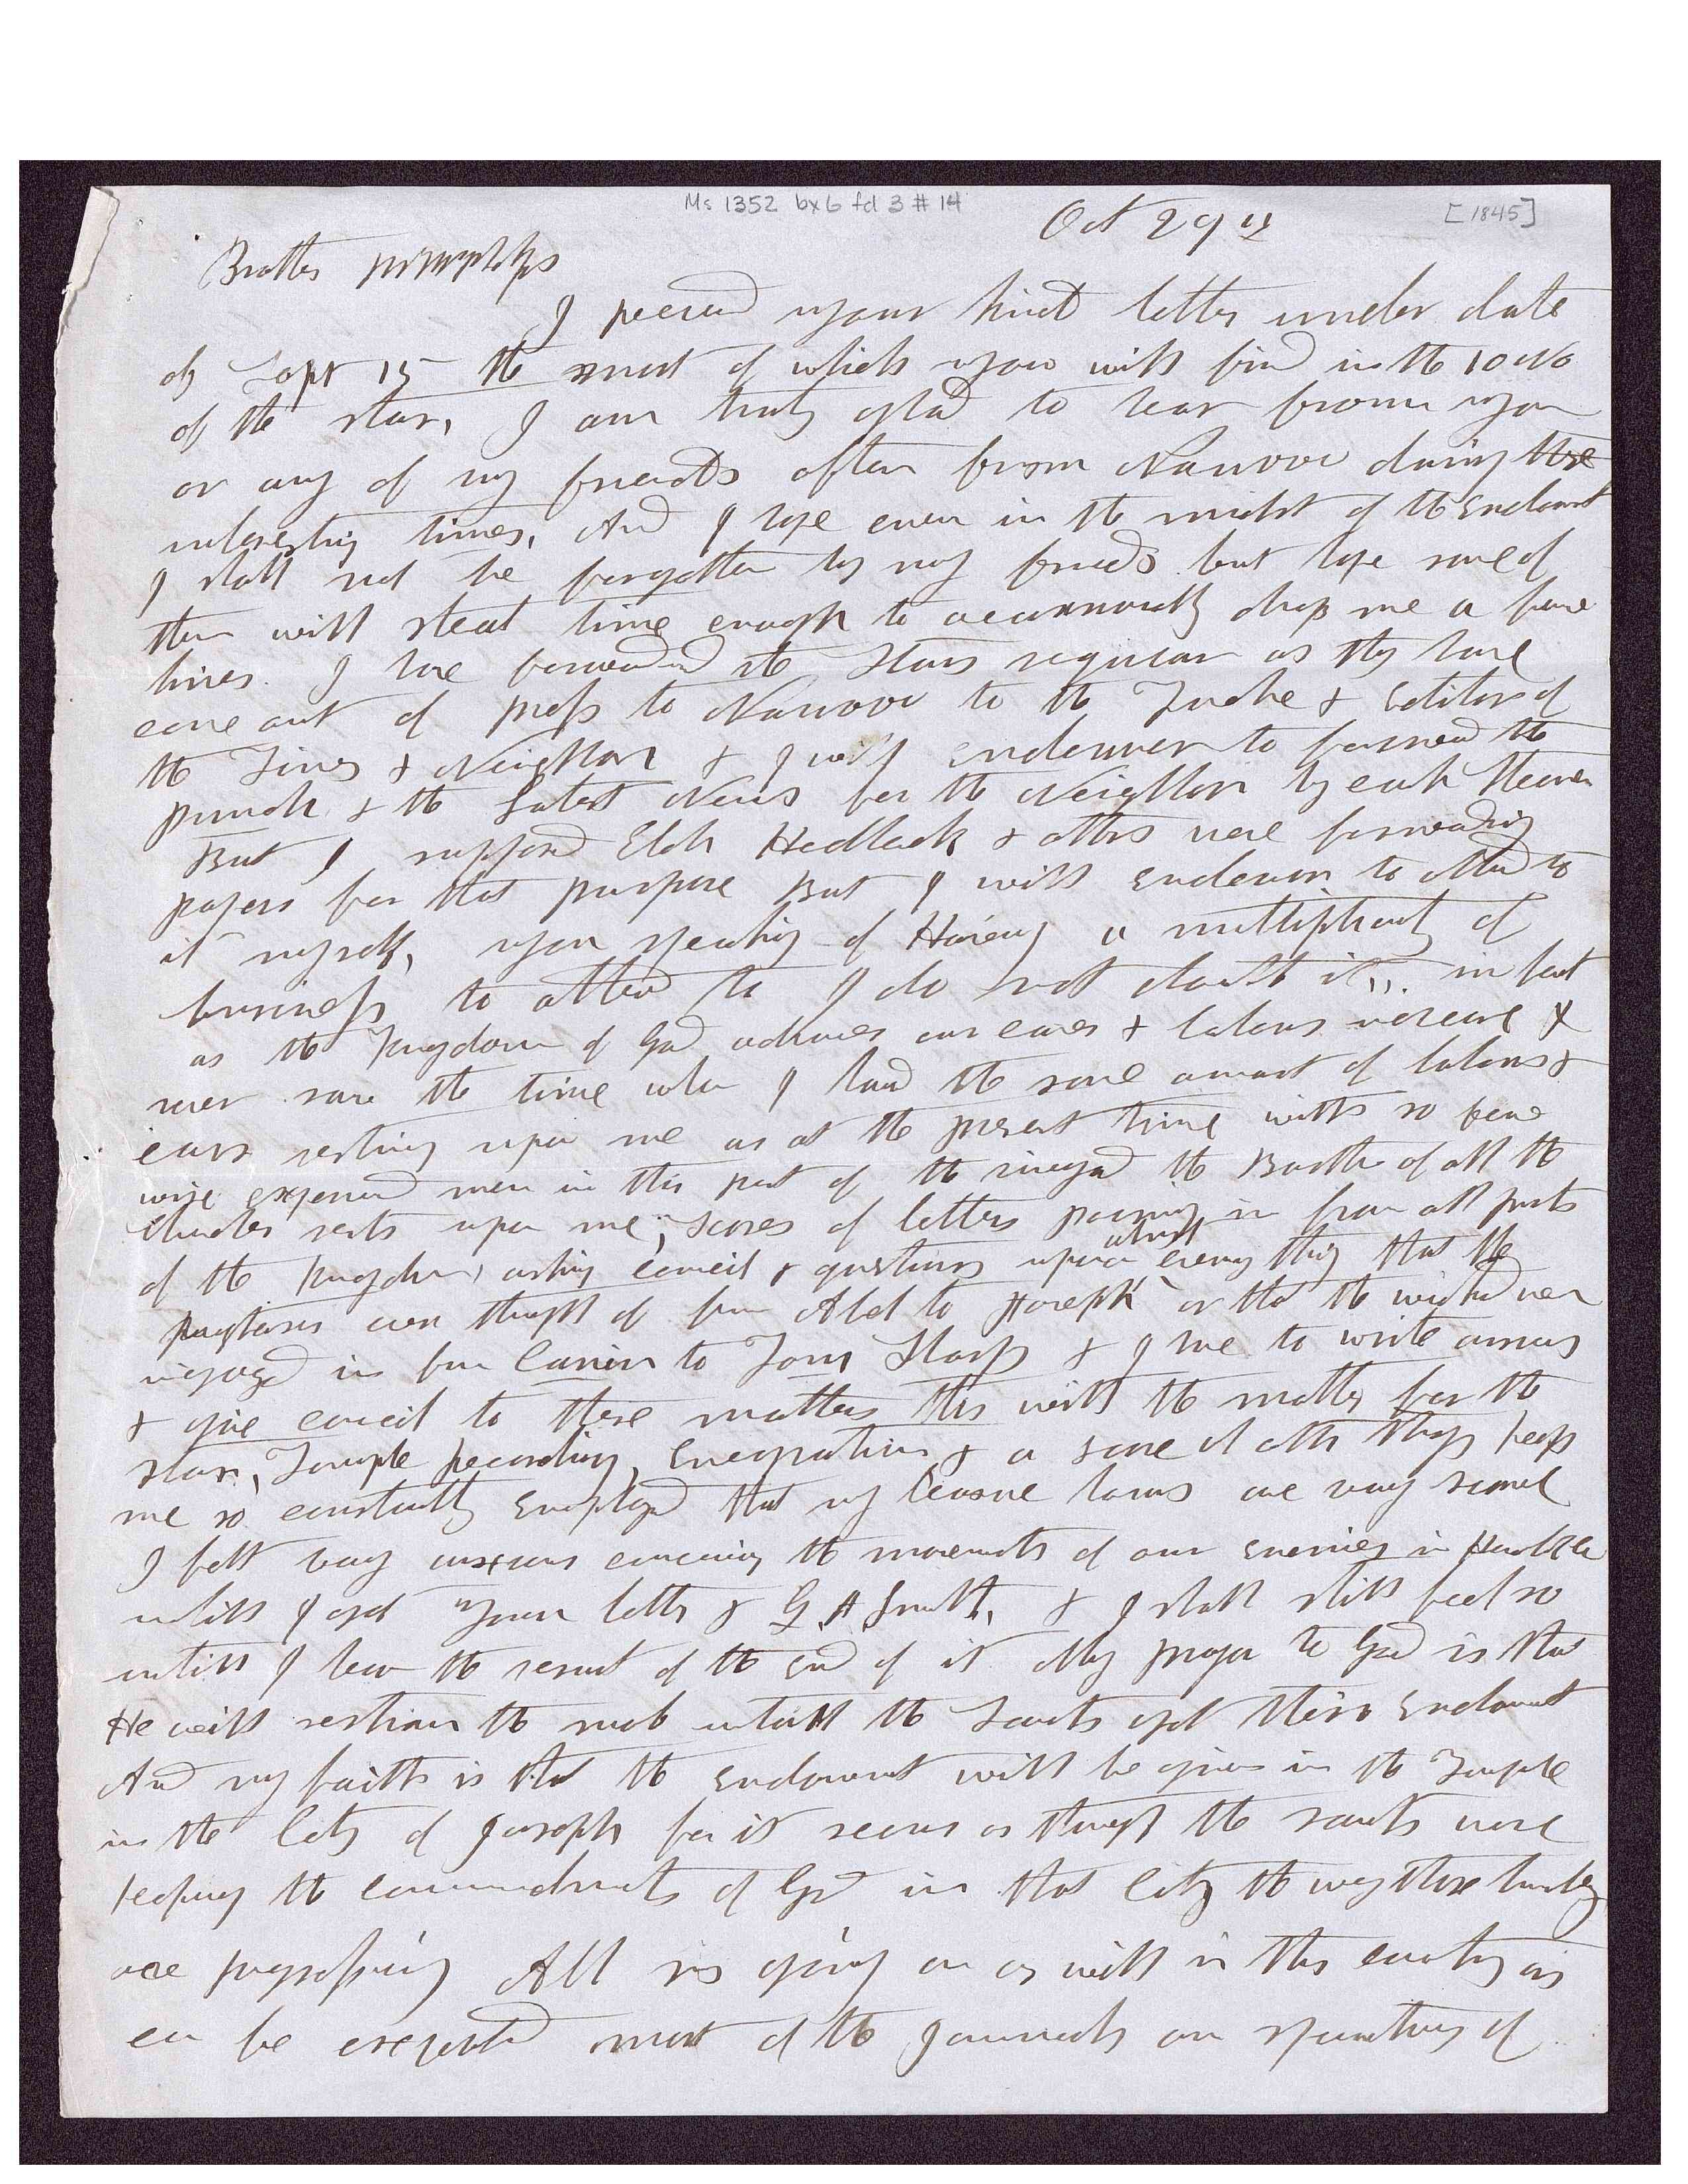 Ms 1352 bx 6 fd 3 # 14
Oct 29th
[1845]
Brother
I received your kind letter under date
of Sept 15 the most of which you will find in the 10 No
of the star, I am truly glad to hear from you
or any of my friends often from Nauvoo during these
interesting times, And I hope even in the midst of the Endowment
I shall not be forgotten by my friends but hope some of
them will steal time enough to occasionally drop me a few
lines. I have forwarded the Stars regular as they have
come out of press to Nauvoo to the Twelve & Editor of
the Times & Neighbor & I will endeavor to forward the
punch & the Latest News for the Neighbor by each Steamer
But I supposed Elder Hedlock & others were forwarding
papers for that purpose But I will endeavor to attend to
it myself, your speaking of Having a multiplicity of
business to attend to I do not doubt it, in fact
as the Kingdom of God advances our cares & labors increase I
never saw the time when I had the same amount of labors &
cares resting upon me as at the present time with so few
wise experienced men in this part of the vineyard the Burthen of all the
Churches rests upon me, scores of letters pouring in from all parts
of the Kingdom, asking council & questions upon almost every thing that the
ever thought of from Abel to Joseph or that the wicked ever
engaged in from Cain to Tom Sharp & I have to write answers
& give council to these matters this with the matter for the
star, Temple Recording, Emegration & a score of other things keeps
me so constantly Employed that my leasure hours are very
I felt very anxious concerning the movements of our Enemies in Hancock Co
untill I got your letter & G. A. Smith, & I shall still feel so
untill I hear the result of the End of it My prayer to God is that
He will restrain the mob untill the Saints get their Endowment
And my faith is that the Endowment will be given in the Temple
in the City of Joseph for it seems as though the saints were
keeping the commandments of God in that City the way those
are progressing All is going on as well in this country as
can be expected most of the journals are speaking of